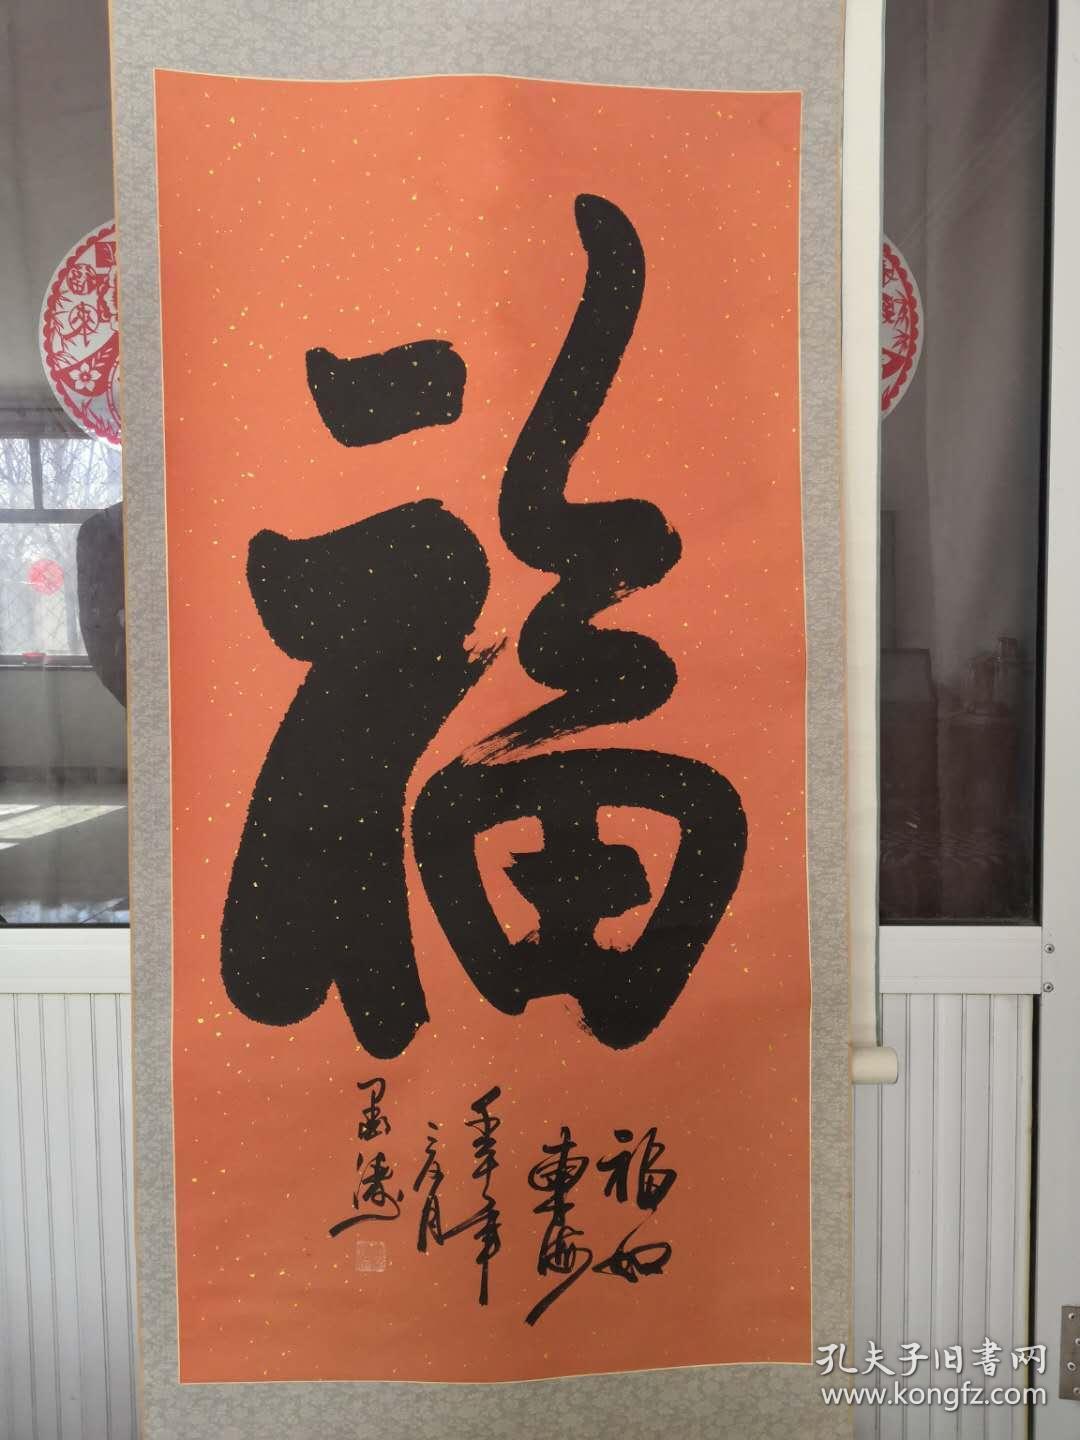 福
福如
东海
壬午年
三月
墨涛
孔夫子旧書网
www.kongfz.com